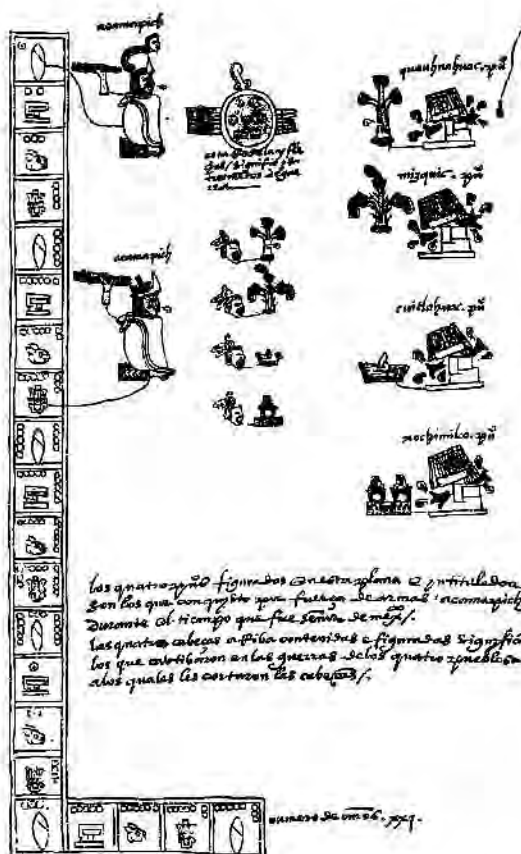 acamapich
quauhnahuac. pu°
mizquic. pu°
esta rodela y fle
chas / significa yns
trumentos de gue
rra
acamapich
cuitlahuac. pu°
xochimilco. pu°
los quatro pu°s figurados en esta plana e yntitulados
son los que conquisto por fuerça de armas acamapich
Durante el tiempo que fue señor de mexº/.
las quatro cabeças arriba contenidas e figuradas significā
los que cautibaron en las guerras de los quatro pueblos
a los quales les cortaron las cabeças/.
numero de años. xxj.